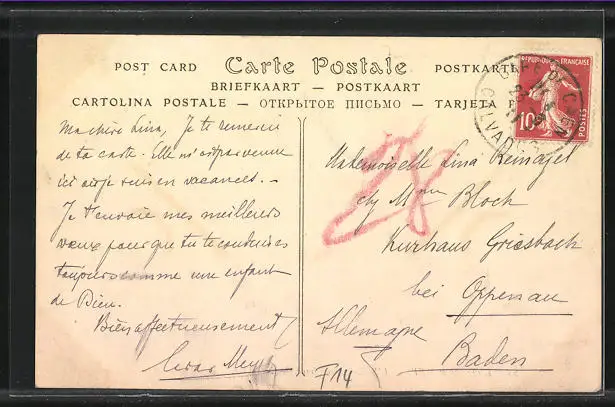 POST CARD Carte Postale POSTKARTE
BRIEFKAART — POSTKAART
CARTOLINA POSTALE — ОТКРЫТОЕ ПИСЬМО — TARJETA P
RÉPUBLIQUE FRANÇAISE
10
POSTES
CALVADOS
Ma chère Lina, Je te remercie
de ta carte. Elle m'est parvenue
ici où je suis en vacances. -
Je t'envoie mes meilleurs
vœux pour que tu te conduises
toujours comme une enfant
de Dieu.
Bien affectueusement
Mademoiselle Lina
c/o Mme Bloch
Kurhaus Griesbach
bei Oppenau
Allemagne Baden
F14